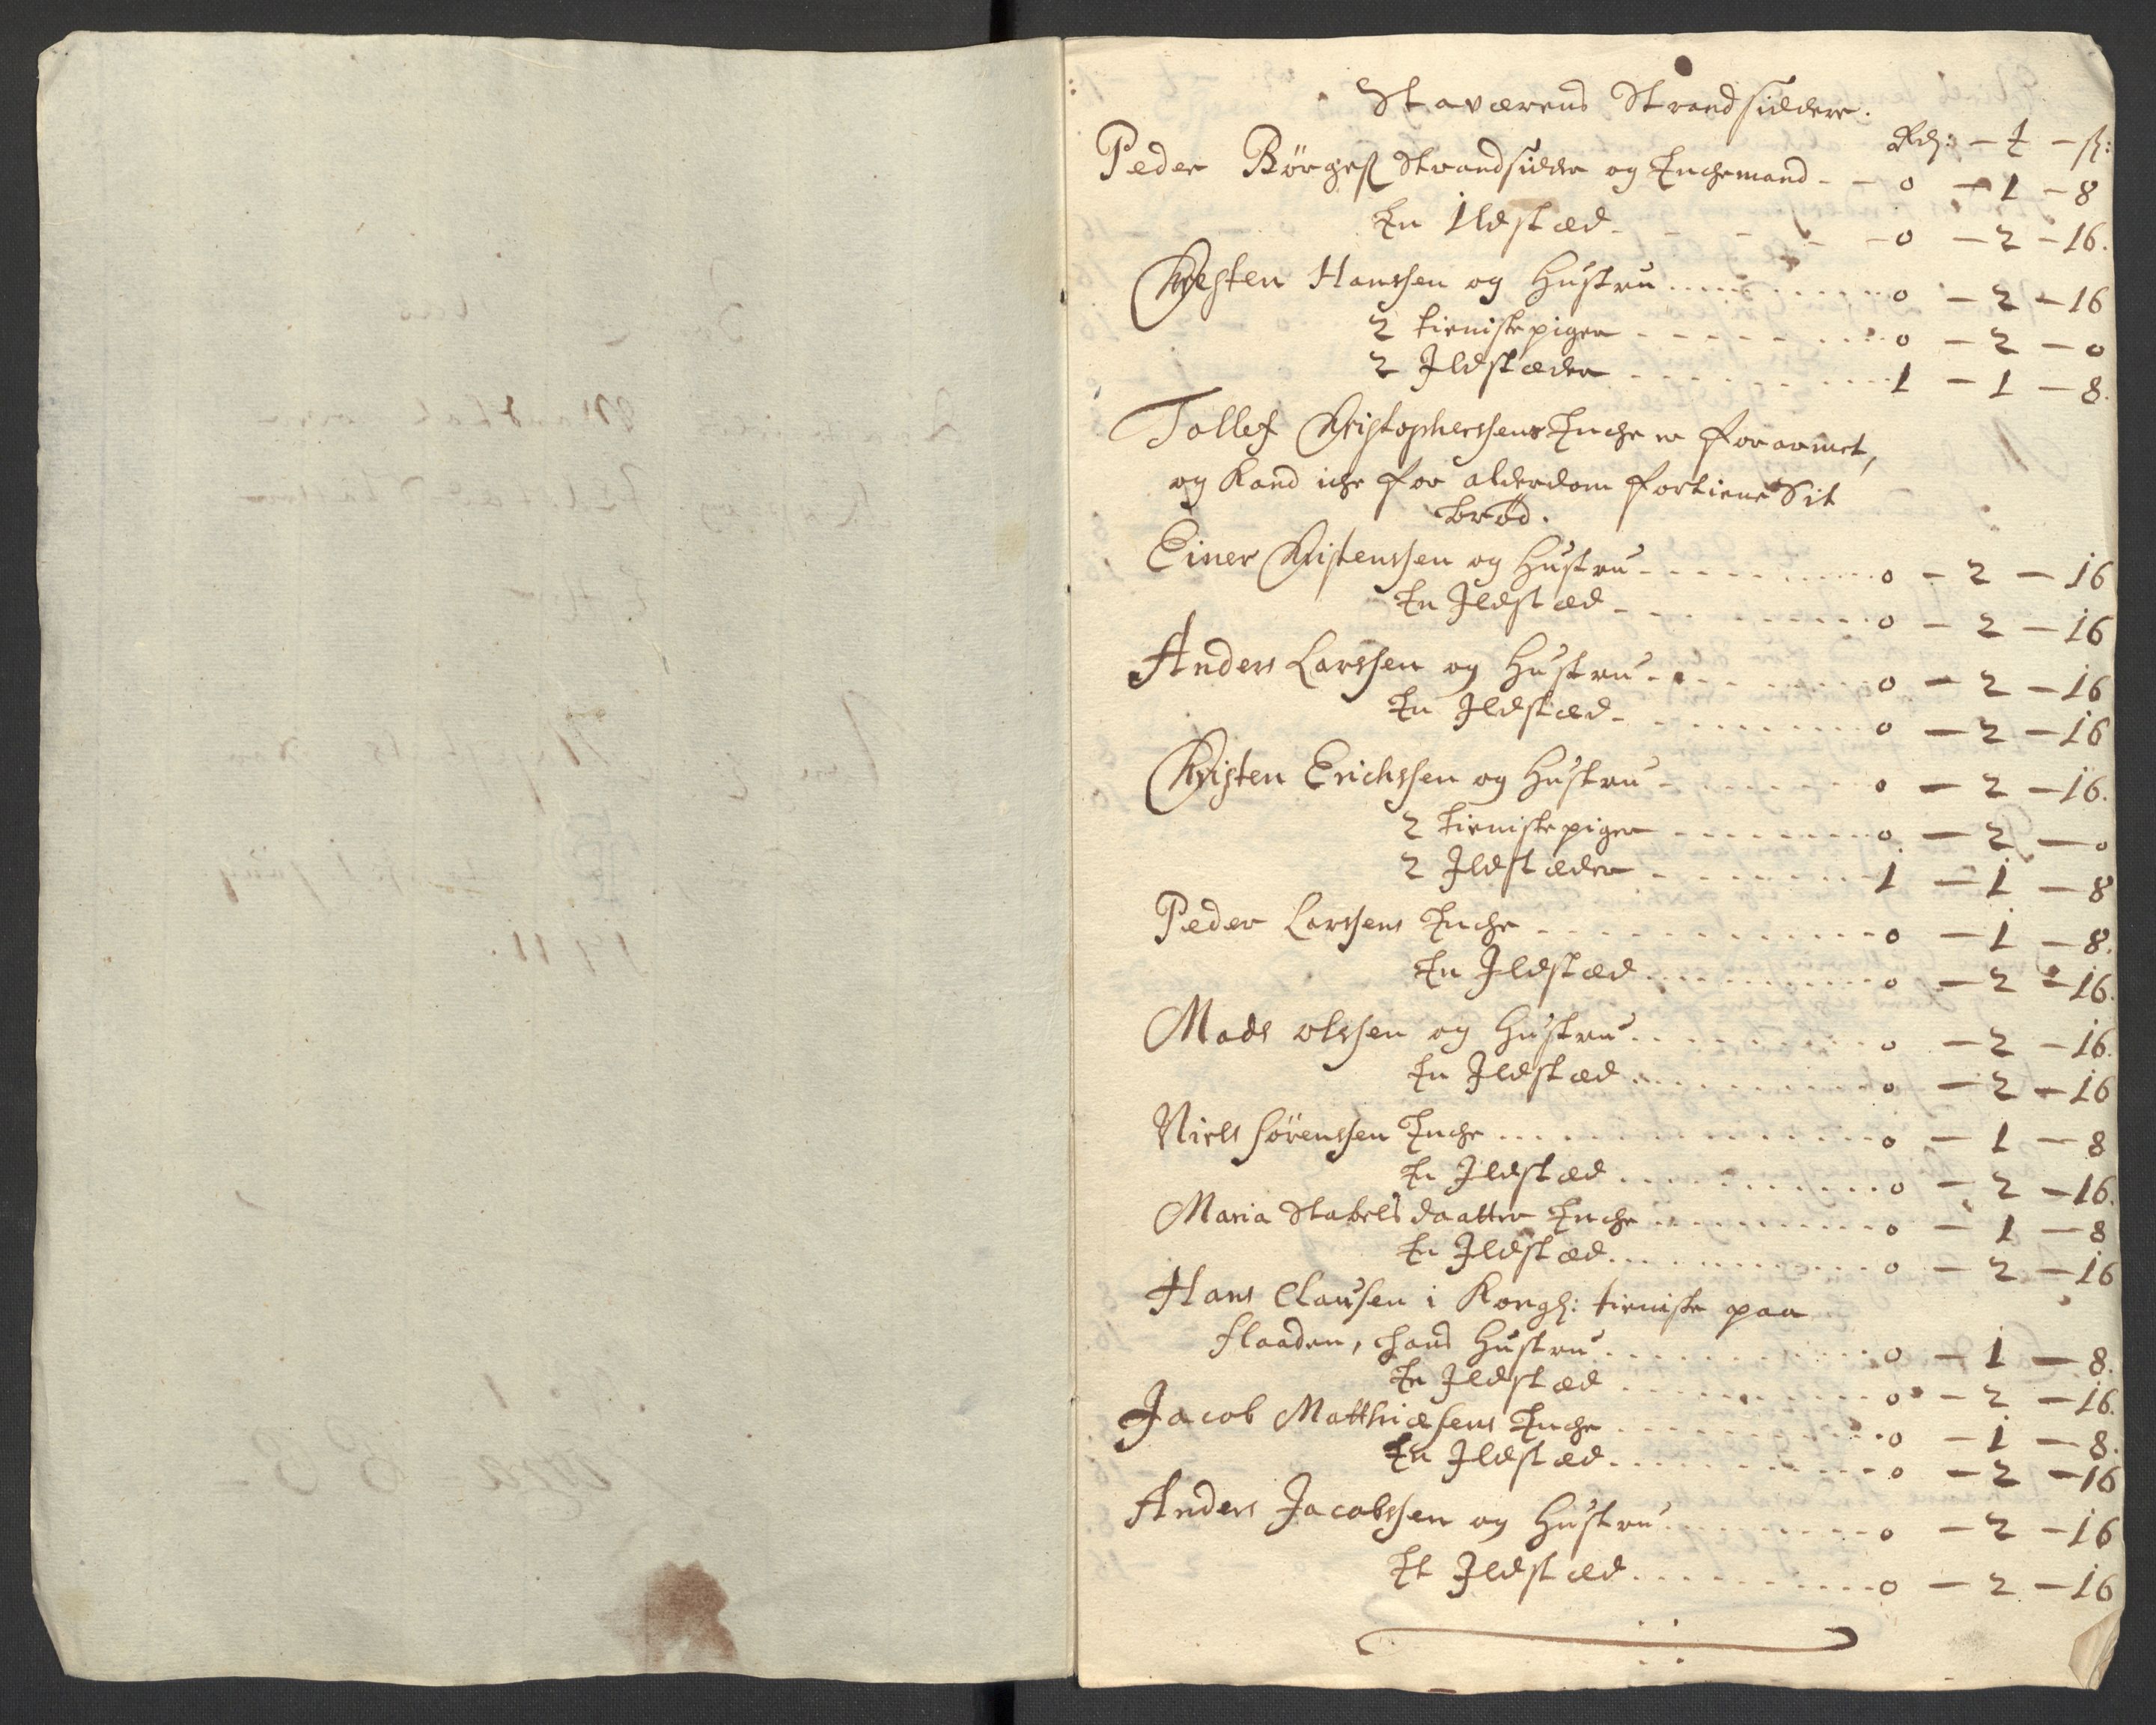 Staværens Strandsiddere.
Rdr: – ƶ – ß:
Peder Börgeß Strandsidder og Enchemand - - 0 – 1 – 8
En Ildstæd - - - - 0 – 2 – 16.
Christen Hanssen og Hustru ..... 0 – 2 – 16
2 tienistepiger - - - - 0 – 2 – 0
2 Ildstæder - - - - 1 – 1 – 8.
Tollef Christopherssens Enche er forarmet,
og Kand iche for alderdom fortiene Sit
brød.
Einer Christenssen og Hustru - - - - 0 – 2 – 16
En Ildstæd - - - - 0 – 2 – 16
Anders Larssen og Hustru - - - - 0 – 2 – 16
En Ildstæd - - - - 0 – 2 – 16
Christen Erichssen og Hustru - - - - 0 – 2 – 16.
2 tienistepiger - - - - 0 – 2 – 0
2 Ildstæder - - - - 1 – 1 – 8
Peder Larssens Enche - - - - 0 – 1 – 8.
En Ildstæd ..... 0 – 2 – 16.
Mads olssen og Hustru ..... 0 – 2 – 16.
En Ildstæd ..... 0 – 2 – 16
Niels Sörenssen Enche ..... 0 – 1 – 8
En Ildstæd ..... 0 – 2 – 16.
Maria Stabels daatter Enche ..... 0 – 1 – 8
En Ildstæd ..... 0 – 2 – 16
Hans Clausen i Kongl: tieniste paa
flaaden, hans Hustru ..... 0 – 1 – 8.
En Ildstæd ..... 0 – 2 – 16.
Jacob Matthiæsens Enche ..... 0 – 1 – 8.
En Ildstæd ..... 0 – 2 – 16
Anders Jacobssen og Hustru ..... 0 – 2 – 16
Et Ildstæd ..... 0 – 2 – 16